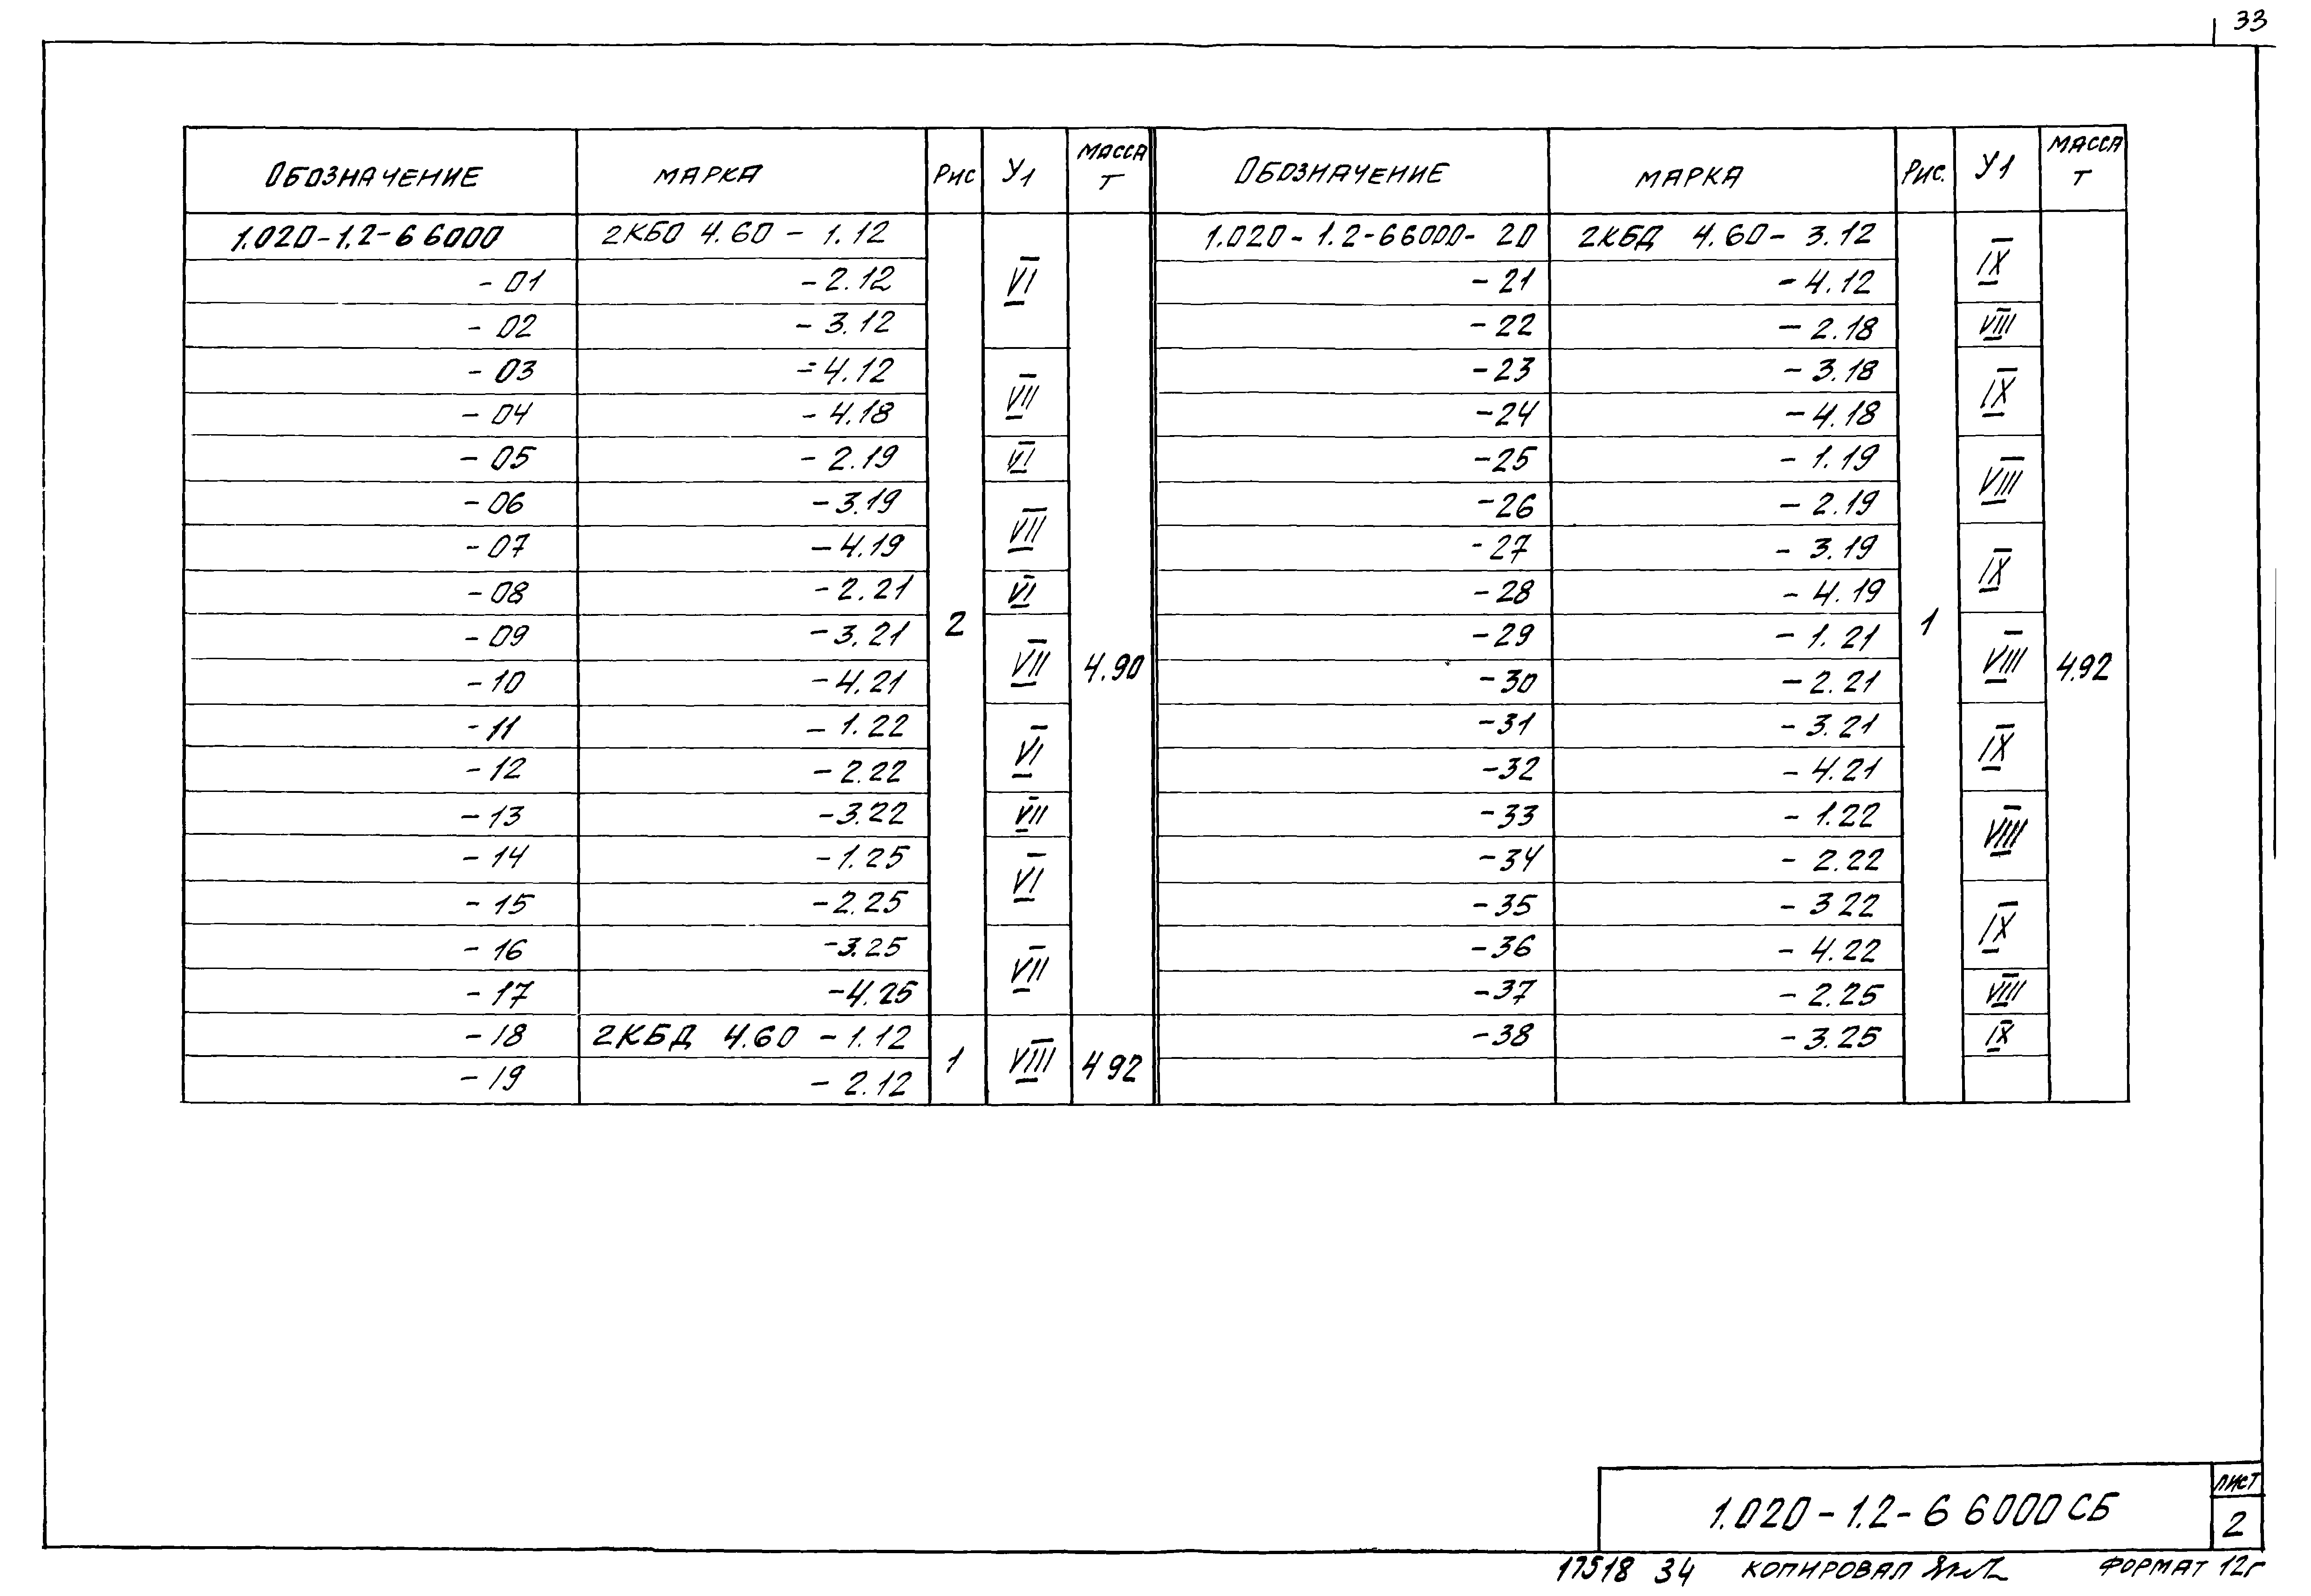 33
ОБОЗНАЧЕНИЕ МАРКА РИС У1 МАССА Т ОБОЗНАЧЕНИЕ МАРКА РИС. У1 МАССА Т
1.020-1.2-6 6000 2КБО 4.60 - 1.12 VI 1.020-1.2-66000-20 2КБД 4.60 - 3.12 IX
- 01 - 2.12 - 21 - 4.12
- 02 - 3.12 - 22 - 2.18 VIII
- 03 - 4.12 VII - 23 - 3.18 IX
- 04 - 4.18 - 24 - 4.18
- 05 - 2.19 VI - 25 - 1.19 VIII
- 06 - 3.19 VII - 26 - 2.19
- 07 - 4.19 - 27 - 3.19 IX
- 08 - 2.21 VI - 28 - 4.19
- 09 - 3.21 2 VII - 29 - 1.21 1 VIII
- 10 - 4.21 4.90 - 30 - 2.21 4.92
- 11 - 1.22 VI - 31 - 3.21 IX
- 12 - 2.22 - 32 - 4.21
- 13 - 3.22 VII - 33 - 1.22 VIII
- 14 - 1.25 VI - 34 - 2.22
- 15 - 2.25 - 35 - 3 22 IX
- 16 - 3.25 VII - 36 - 4.22
- 17 - 4.25 - 37 - 2.25 VIII
- 18 2КБД 4.60 - 1.12 1 VIII 4 92 - 38 - 3.25 IX
- 19 - 2.12
1.020-1.2-6 6000 СБ ЛИСТ 2
17518 34 КОПИРОВАЛ ФОРМАТ 12г